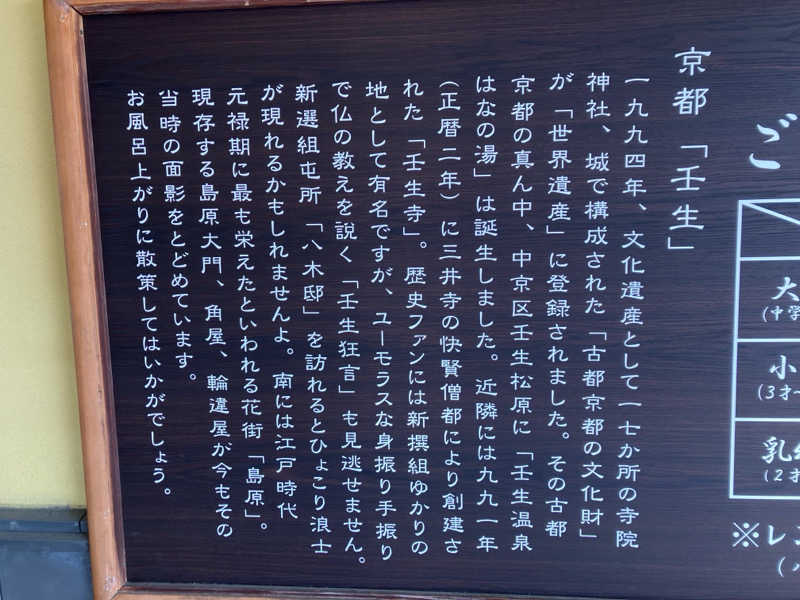 ご
大
(中学
小
(3才~
乳幼
(2才
※レン
京都「壬生」
一九九四年、文化遺産として一七か所の寺院
神社、城で構成された「古都京都の文化財」
が「世界遺産」に登録されました。その古都
京都の真ん中、中京区壬生松原に「壬生温泉
はなの湯」は誕生しました。近隣には九九一年
(正暦二年)に三井寺の快賢僧都により創建さ
れた「壬生寺」。歴史ファンには新撰組ゆかりの
地として有名ですが、ユーモラスな身振り手振り
で仏の教えを説く「壬生狂言」も見逃せません。
新選組屯所「八木邸」を訪れるとひょこり浪士
が現れるかもしれませんよ。南には江戸時代
元禄期に最も栄えたといわれる花街「島原」。
現存する島原大門、角屋、輪違屋が今もその
当時の面影をとどめています。
お風呂上がりに散策してはいかがでしょう。